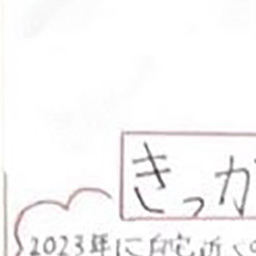 きっか
2023年に自宅近く